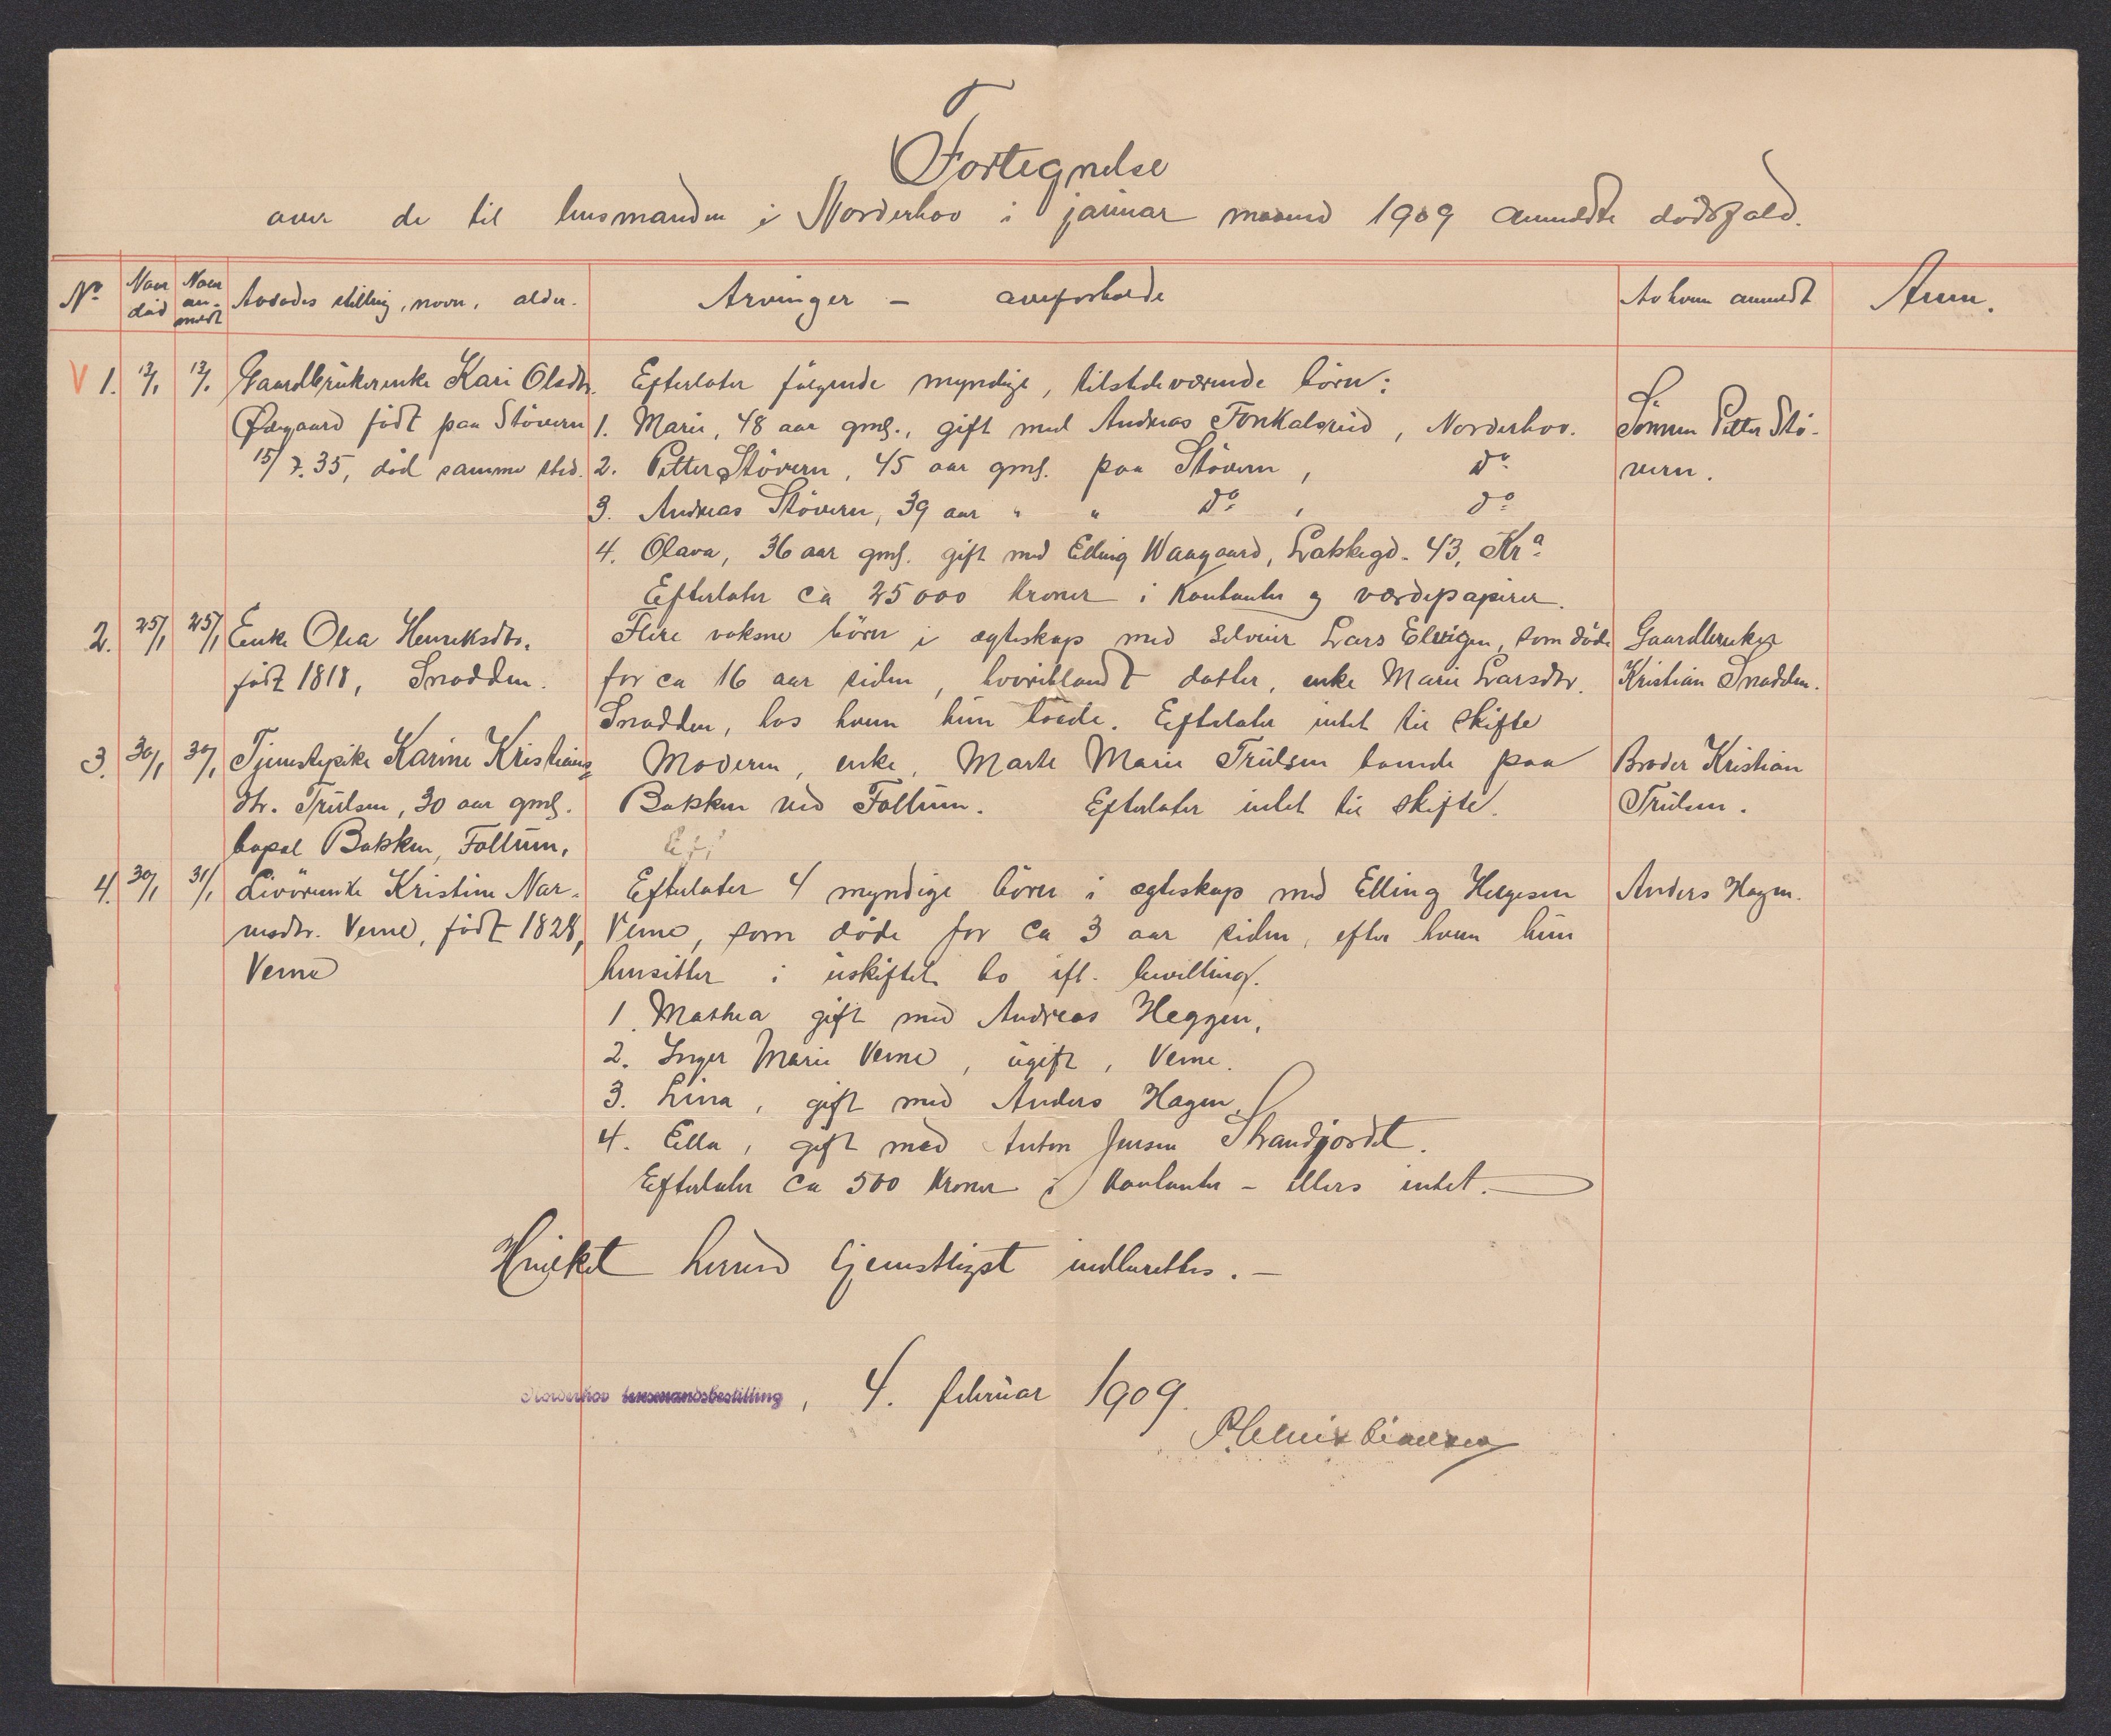 Fortegnelse
over de til lensmanden i Norderhov i januar maaned 1909 anmeldte dødsfald.
No Naar død Naar an- meldt Avdødes stilling, navn, alder. Arvinger - arveforholde Av hvem anmeldt Anm.
V 1. 12/1 12/1 Gaardbrukerenke Kari Olsdtr. Efterlater følgende myndige, tilstedeværende børn:
Ødegaard født paa Støvern 1. Marie, 48 aar gml., gift med Andreas Fonkalsrud, Norderhov. Sønnen Petter Stø-
15/7.35, død samme sted. 2. Petter Støvern, 45 aar gml. paa Støvern, do vern.
3. Andreas Støvern, 39 aar " " do , do
4. Olava, 36 aar gml. gift med Elling Waagaard, Lakkegd. 43, Kra
Efterlater ca 25000 kroner i kontanter og værdipapirer.
2. 25/1 25/1 Enke Olea Henriksdtr. Flere voksne børn i egteskap med selveier Lars Elvigen, som døde Gaardbruker
født 1818, Snadden. for ca 16 aar siden, hvoriblandt datter, enke Marie Larsdtr. Kristian Snadden.
Snadden, hos hvem hun boede. Efterlater intet til skifte
3. 30/1 30/1 Tjenestepike Karine Kristians= Moderen, enke, Marte Marie Trulsen boende paa Broder Kristian
dtr. Trulsen, 30 aar gml. Bakken ved Follum. Efterlater intet til skifte. Trulsen.
bopæl Bakken, Follum. Ef
4. 30/1 31/1 Livørenke Kristine Nar- Efterlater 4 myndige børn i egteskap med Elling Helgesen Anders Hagen.
vesdtr. Verne, født 1828, Verne, som døde for ca 3 aar siden, efter hvem hun
Verne hensitter i uskiftet bo ifl. bevilling.
1. Mathea gift med Andreas Heggen,
2. Inger Marie Verne, ugift, Verne.
3. Lina, gift med Anders Hagen,
4. Ella, gift med Anton Jensen Strandjordet.
Efterlater ca 500 kroner i kontanter - ellers intet.
Hvilket herved tjenstligst indberettes. -
Norderhov lensmandsbestilling, 4. februar 1909.